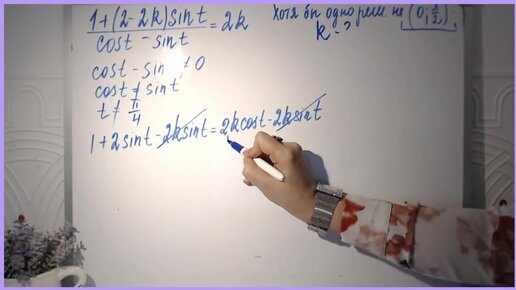 1+(2-2k)sint / cost - sint = 2k
Хотя бы одно реш. на (0; π/2).
k - ?
cost - sint ≠ 0
cost ≠ sint
t ≠ π/4
1+2sint-2ksint=2kcost-2ksint